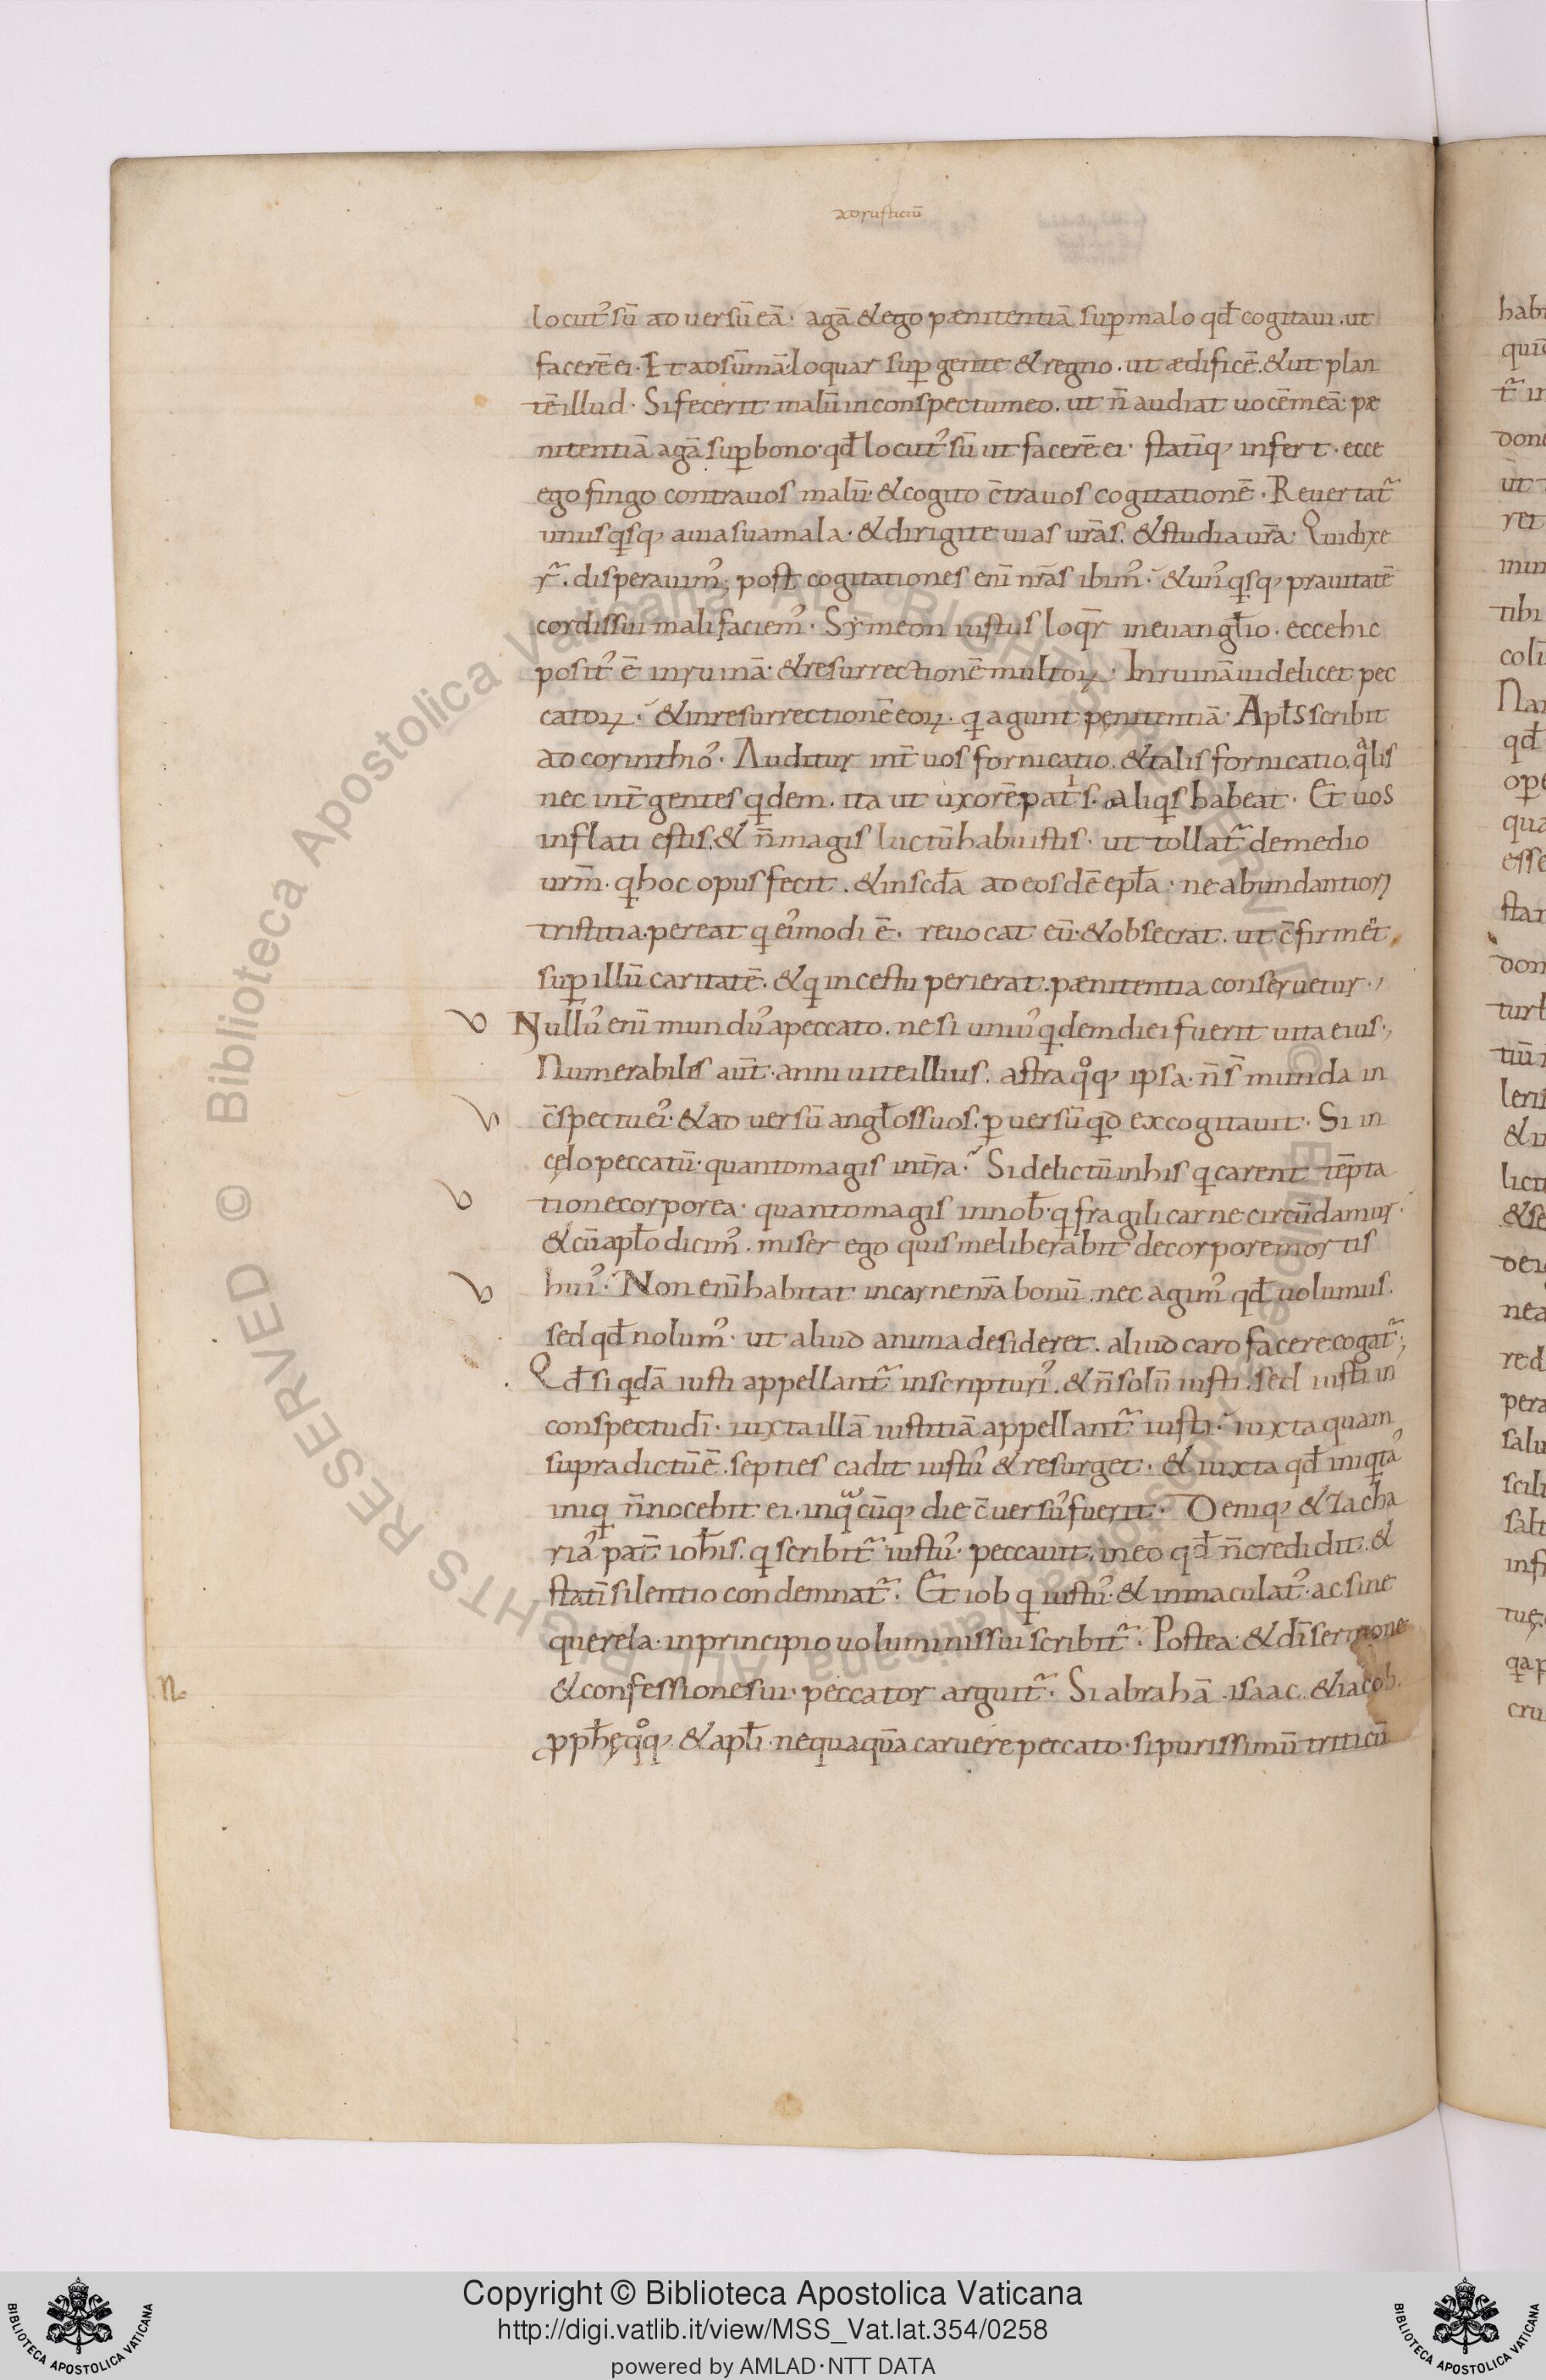 ad rusticū
locut᾽ sū ad uersū eā· agā & ego pænitentiā sup malo qđ cogitaui. ut
facerē ei· Et ad sūmā· loquar sup gente & regno. ut ædificē. & ut plan
tē illud· Si fecerit malū in conspectu meo. ut n̄ audiat uocē meā: pæ
nitentiā agā sup bono· qđ locut᾽ sū ut facerē ei· statīq; infert· ecce
ego fingo contra uos malū· & cogito c̄tra uos cogitationē· Reuertat᷑
unusqsq; a uia sua mala· & dirigite uias ur̄as. & studia ur̄a· Qui dixe
r᷑. disperauim᾽; post cogitationes enī nr̄as ibim᾽· & un᾽qsq; prauitatē
cordis sui mali faciem᾽· Symeon iustus loqr̄ in euangł̄io. ecce hic
posit᾽ ē in ruinā· & resurrectionē multoꝝ· In ruinā uidelicet pec
catoꝝ· & in resurrectionē eoꝝ· q agunt pęnitentiā· Apłs scribit
ad corinthio᾽· Auditur int̄ uos fornicatio. & talis fornicatio. qͣlis
nec int̄ gentes qdem. ita ut uxorē patⁱs. aliqs habeat· Et uos
inflati estis. & n̄ magis luctū habuistis· ut tollat᷑ de medio
urm̄· q hoc opus fecit. & in scđa ad eosdē epła· ne abundantiorj
tristitia· pereat q ei᾽modi ē· reuocat eū· & obsecrat. ut c̄firmēt
sup illū caritatē. & q incestu perierat. pænitentia conseruetur·,
Null᾽ enī mund᾽ a peccato. ne si uni᾽ qdem diei fuerit uita eius·,
Numerabiles aūt· anni uite illius. astra qᵒq; ipsa· n̄ s̄ munda in
c̄spectu ei᾽· & aduersū angłos suos. peruersū qd excogitauit· Si in
cęlo peccatū· quanto magis in tr̄a· Si delictū in his q carent tēpta
tione corporea· quanto magis in nob̄· q fragili carne circūdamur·
& cū apło dicim᾽. miser ego quis me liberabit de corpore mortis
hui᾽· Non enī habitat in carne nr̄a bonū. nec agim᾽ qđ uolumus.
sed qđ nolum᾽· ut aliud anima desideret. aliud caro facere cogat᷑;
Qđ si qdā iusti appellant᷑ in scripturi᾽. & n̄ solū iusti. sed iusti in
conspectu dī· iuxta illā iustitiā appellant᷑ iusti· iuxta quam
supra dictū ē. septies cadit iust᾽ & resurget· & iuxta qđ iniqta᾽
iniq n̄ nocebit ei. in qͣcūq; die c̄uers᾽ fuerit· Deniq; & zacha
ria᾽ pat̄ ioħis. q scribit᷑ iust᾽· peccauit. in eo qđ n̄ credidit. &
statī silentio condemnat᷑· Et iob q iust᾽· & inmaculat᾽· ac sine
querela· in principio uoluminis sui scribit᷑· Postea· & dī sermone
& confessione sui· peccator arguit᷑· Si abrahā isaac. & iacob.
ꝓpħę qᵒq; & apłi· nequaquā caruere peccato· si purissimū triticū
n
Copyright © Biblioteca Apostolica Vaticana
http://digi.vatlib.it/view/MSS_Vat.lat.354/0258
powered by AMLAD·NTT DATA